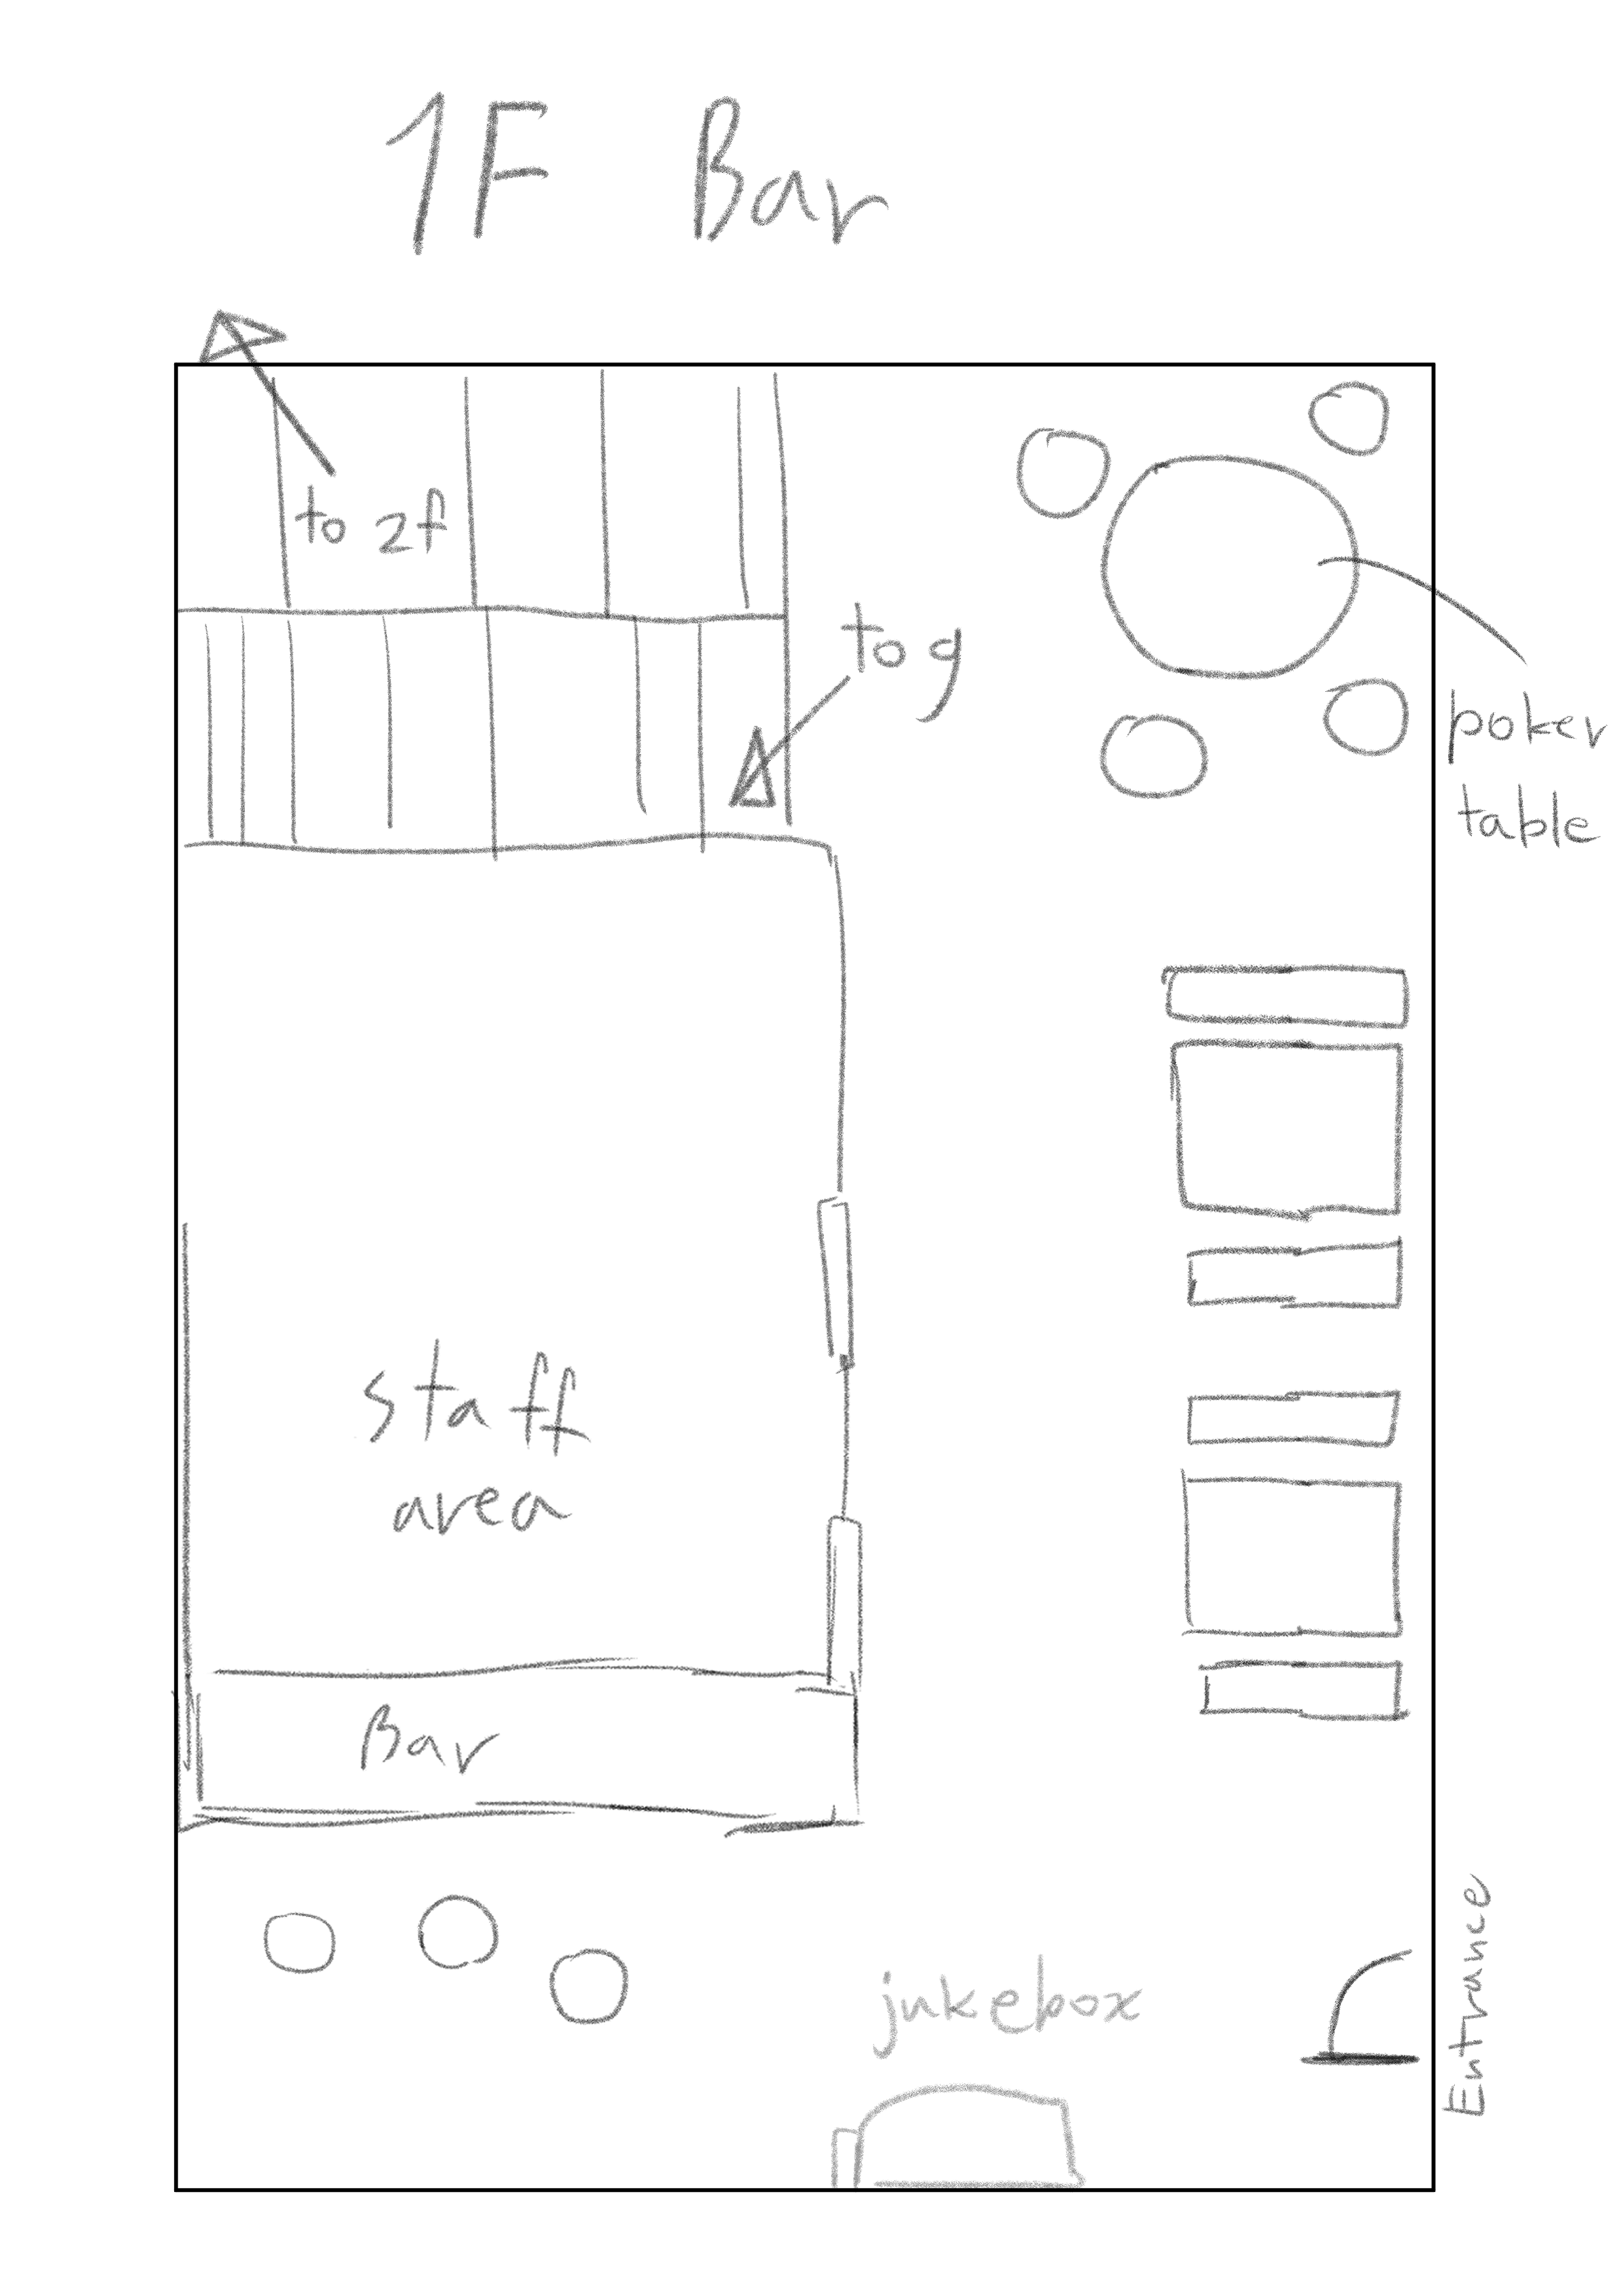 1F Bar
to 2f
to g
poker
table
staff
area
Bar
jukebox
Entrance